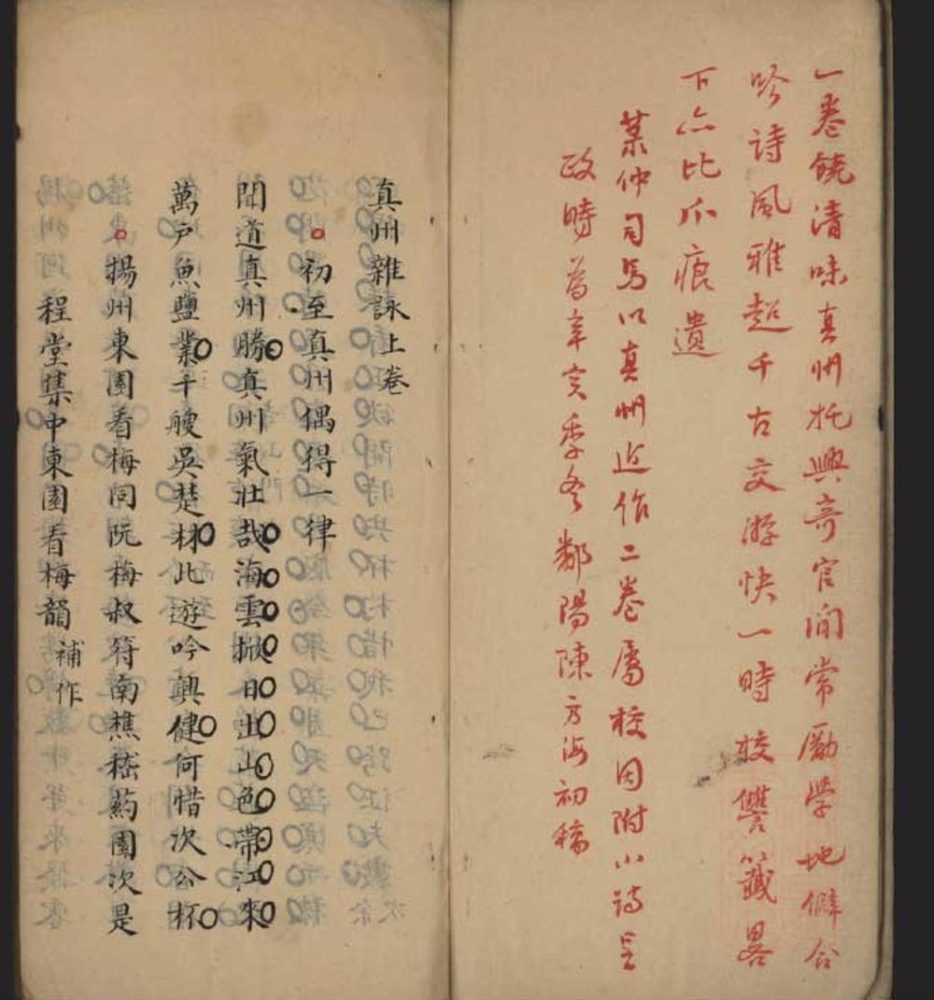 一卷饒清味真州托興奇官閒常勵學地僻合
吟詩風雅超千古交游快一時校讐籤畧
下亦比爪痕遺
葉仲司馬以真州近作二卷屬校因附小詩呈
政時爲辛亥季冬鄱陽陳方海初稿
真州雜詠上卷
初至真州偶得一律
聞道真州勝真州氣壯哉海雲掀日出山色帶江來
萬戶魚鹽業千艘吳楚材此遊吟興健何惜次公杯
揚州東園看梅同阮梅叔符南樵嵇葯園次是
程堂集中東園看梅韻
補作